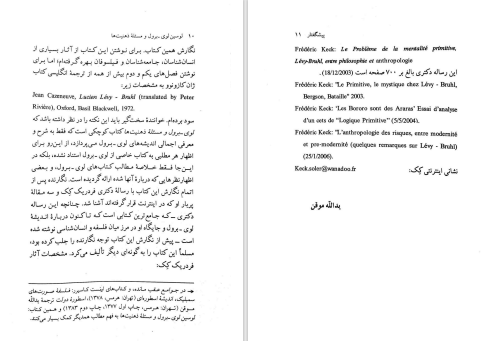 ۱۰ لوسین لوی ـ برول و مسئلهٔ ذهنیت‌ها
نگارش همین کتاب. برای نوشتن این کتاب از آثار بسیاری از
انسان‌شناسان، جامعه‌شناسان و فیلسوفان بهره گرفته‌ام؛ اما برای
نوشتن فصل‌های یکم و دوم بیش از همه از ترجمهٔ انگلیسی کتاب
ژان کازونوو به مشخصات زیر:
Jean Cazeneuve, Lucien Lévy - Bruhl (translated by Peter
Rivière), Oxford, Basil Blackwell, 1972.
سود برده‌ام. خوانندهٔ سختگیر باید این نکته را در نظر داشته باشد که
لوی ـ برول و مسئلهٔ ذهنیت‌ها کتاب کوچکی است که فقط به شرح و
معرفی اجمالی اندیشه‌های لوی ـ برول می‌پردازد، از این‌رو برای
اظهار هر مطلبی به کتاب خاصی از لوی ـ برول استناد نشده، بلکه در
این‌جا فقط خلاصهٔ مطالب کتاب‌های لوی ـ برول، و بعضی
اظهارنظرهایی که دربارهٔ آنها شده ارائه گردیده است. نگارنده پس از
اتمام نگارش این کتاب با رسالهٔ دکتری فردریک کِک و سه مقالهٔ
پربار او که در اینترنت قرار گرفته‌اند آشنا شد. چنانچه این رساله
دکتری ـ که جامع‌ترین کتابی است که تاکنون دربارهٔ اندیشهٔ
لوی ـ برول و جایگاه او در مرز میان فلسفه و انسان‌شناسی نوشته شده
است ـ پیش از نگارش این کتاب توجه نگارنده را جلب کرده بود،
مسلماً این کتاب را به گونه‌ای دیگر تألیف می‌کرد. مشخصات آثار
فردریک کِک:
← در جوامع عقب مانده، و کتاب‌های ارنست کاسیرر: فلسفهٔ صورت‌های
سمبلیک، اندیشهٔ اسطوره‌ای (تهران: هرمس، ۱۳۷۸)، اسطورهٔ دولت ترجمهٔ یدالله
موقن (تهران: هرمس، چاپ اول ۱۳۷۷، چاپ دوم ۱۳۸۳) و همین کتاب:
لوسین لوی ـ برول و مسئلهٔ ذهنیت‌ها به فهم مطالب همدیگر کمک بسیار می‌کنند.
پیشگفتار ۱۱
Frédéric Keck: Le Problème de la mentalité primitive,
Lévy-Bruhl, entre philosophie et anthropologie
این رساله دکتری بالغ بر ۷۰۰ صفحه است (18/12/2003).
Frédéric Keck: "Le Primitive, le mystique chez Lévy - Bruhl,
Bergson, Bataille" 2003.
Frédéric Keck: 'Les Bororo sont des Araras' Essai d'analyse
d'un cets de "Logique Primitive" (5/5/2004).
Frédéric Keck: "L'anthropologie des risques, entre modernité
et pro-modernité (quelques remarques sur Lévy - Bruhl)
(25/1/2006).
نشانی اینترنتی کِک: Keck.soler@wanadoo.fr
یدالله موقن